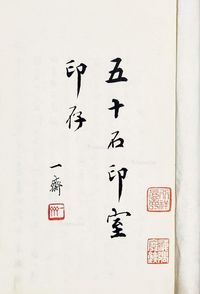 五十石印室
印存
一齋